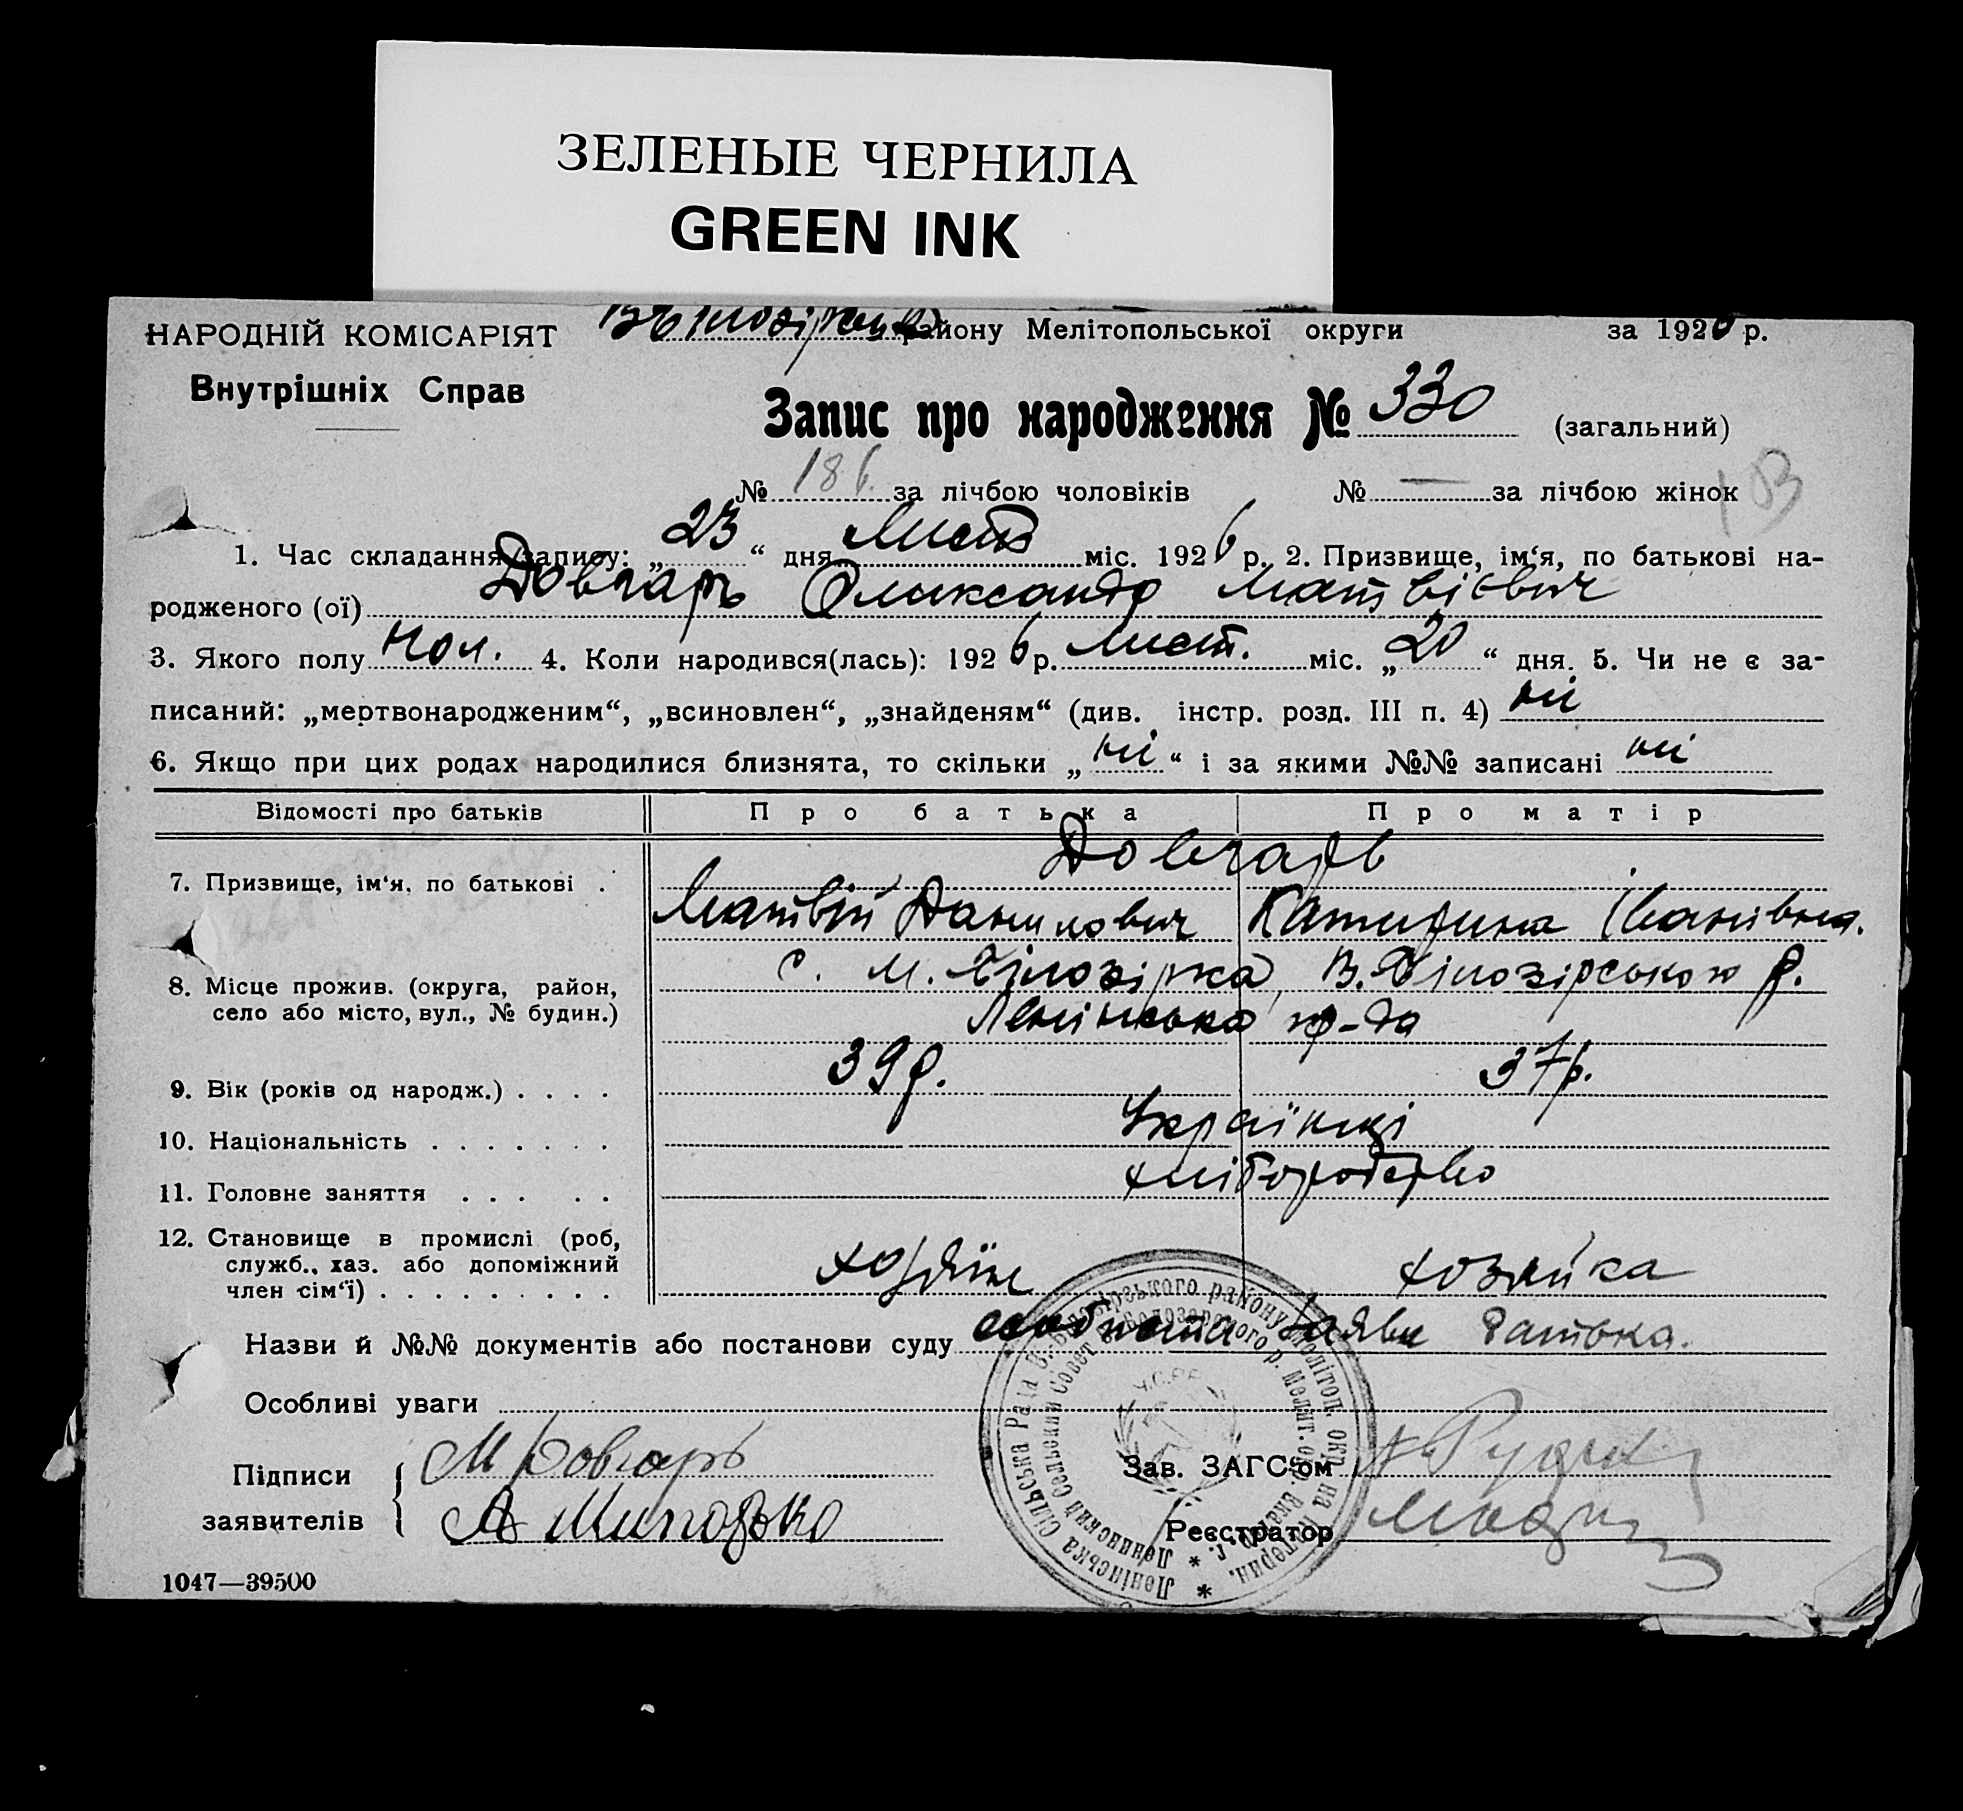 ЗЕЛЕНЫЕ ЧЕРНИЛА
GREEN INK
НАРОДНІЙ КОМІСАРІЯТ
Внутрішніх Справ
району Мелітопольської округи за 1926 р.
Запис про народження № 330 (загальний)
№ 186. за лічбою чоловіків № — за лічбою жінок
103
1. Час складання запису: „23“ дня Лист міс. 1926 р. 2. Призвище, ім‘я, по батькові на-
родженого (ої) Довгаръ Олександр Матвієвич
3. Якого полу чол. 4. Коли народився(лась): 1926 р. Лист. міс. „20“ дня. 5. Чи не є за-
писаний: „мертвонародженим“, „всиновлен“, „знайденям“ (див. інстр. розд. III п. 4) ні
6. Якщо при цих родах народилися близнята, то скільки „ні“ і за якими №№ записані ні
Відомості про батьків Про батька Про матір
Довгарь
7. Призвище, ім‘я, по батькові . Матвій Данилович Катирина Іванівна.
8. Місце прожив. (округа, район, с. М. Білозірка, В. Білозірського р.
село або місто, вул., № будин.) Ленінська
9. Вік (років од народж.) . . . . 39 р. 37 р.
10. Національність . . . . . . . Українці
11. Головне заняття . . . . . хліборобство
12. Становище в промислі (роб,
служб., хаз. або допоміжний
член сім‘ї) . . . . . . . . . хозяїн хозяйка
Назви й №№ документів або постанови суду особиста заява батька.
Особливі уваги
Підписи
заявителів
М Довгаръ
Зав. ЗАГС‘ом
Реєстратор
Ленінська Сільська Рада В.-Білозірського району Мелітоп. окр. на Катерин.
Ленинский Сельский Совет В.-Белозерского р. Мелит. окр. Екатер. г.
1047—39500